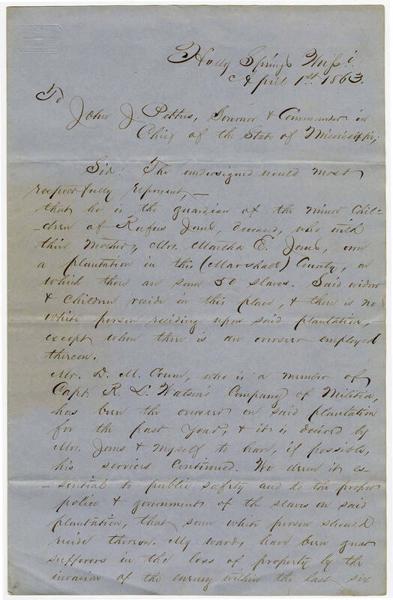 Holly Springs Miſs:
April 1st. 1863.
To
John J Pettus, Governor & Commander in
Chief of the State of Mississippi,
Sir: The undersigned would most
respectfully represent,—
that he is the guardian of the minor Chil-
-dren of Rufus Jones, deceased, who with
their Mother, Mrs. Martha E. Jones, own
a plantation in this (Marshall) County, on
which there are some 50 slaves. Said widow
& Children reside in this place, & there is no
white person residing upon said plantation,
except when there is an overseer employed
thereon.
Mr. D. M. who is a member of
Capt. R. L. Watson's Company of Militia,
has been the overseer on said plantation
for the past year, & it is desired by
Mrs. Jones & myself to have, if possible,
his services Continued. We deem it es-
-sential to public safety and to the proper
police & government of the slaves on said
plantation, that some white person should
reside thereon. My wards, have been great
sufferers in the loss of property by the
invasion of the enemy within the last six